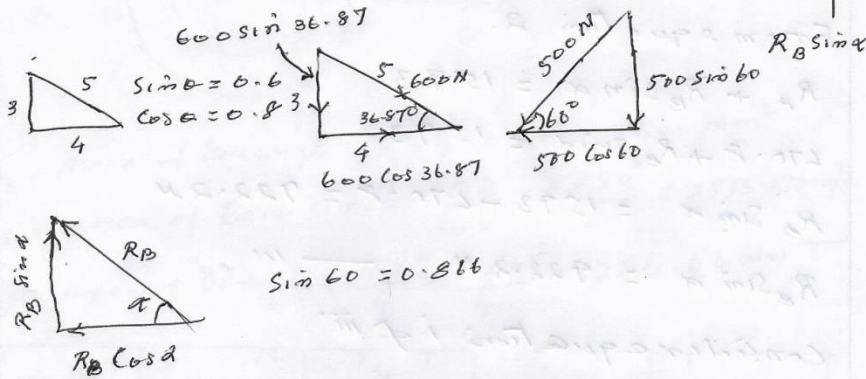 600 sin 36.87
R_B sinα
5
sinθ = 0.6
cosθ = 0.8
3
4
5
600N
3
36.87°
4
600 cos 36.87
500N
500 sin 60
60°
500 cos 60
R_B sinα
R_B
α
R_B cosα
sin 60 = 0.866